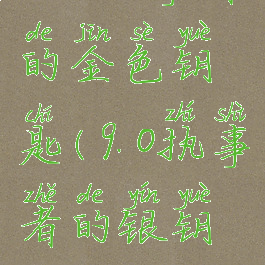 de jīn sè yuè
的金色钥
chí zhí shì
匙(9.0执事
zhě de yín yuè
者的银钥